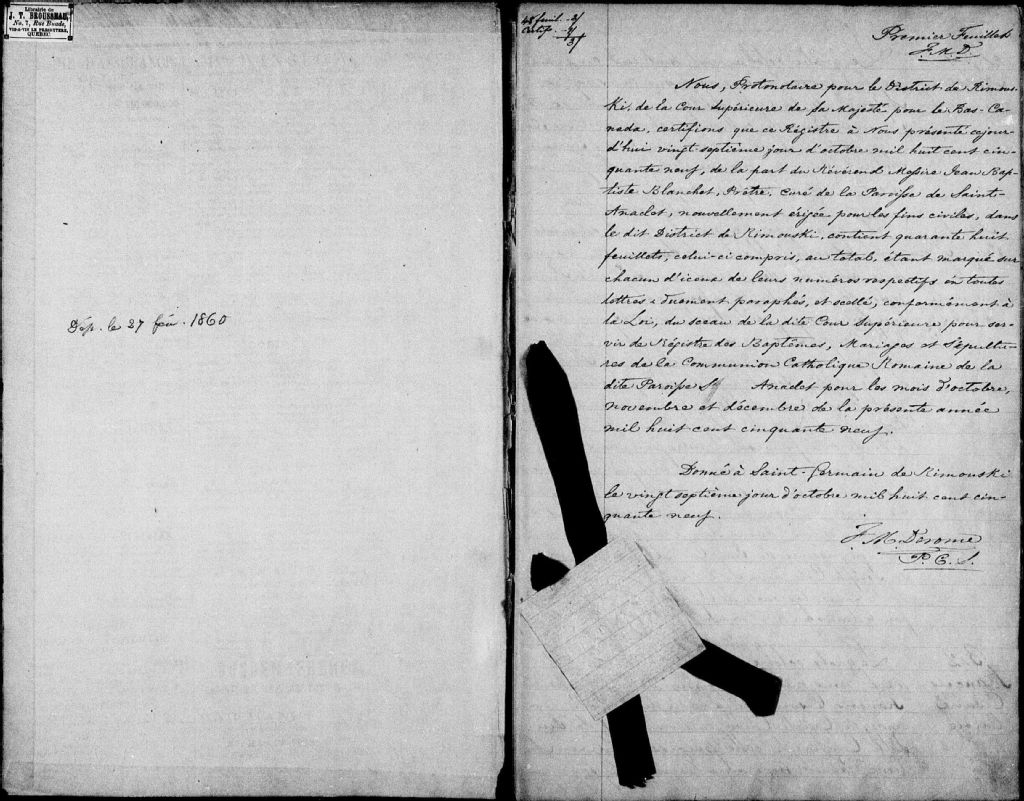 Librairie de
J. T. BROUSSEAU,
No. 7, Rue Buade,
VIS-A-VIS LE PRESBYTERE,
QUEBEC
Dép. le 27 fév. 1860
48 feuil. 2/
Certif. 1/
3/
Premier Feuillet
F. M. D.
Nous, Protonotaire pour le District de Rimous-
ki, de la Cour Supérieure de Sa Majesté pour le Bas-Ca-
nada, certifions que ce Régistre à Nous présenté cejour-
d'hui vingt septième jour d'octobre mil huit cent cin-
quante neuf, de la part du Révérend Messire Jean Bap-
tiste Blanchet, Prêtre, curé de la Paroisse de Saint-
Anaclet, nouvellement érigée pour les fins civiles, dans
le dit District de Rimouski, contient quarante huit
feuillets, celui-ci compris, au total, étant marqué sur
chacun d'iceux de leurs numéros respectifs en toutes
lettres & duement paraphés, et scellé, conformément à
la Loi, du sceau de la dite Cour Supérieure pour ser-
vir de Régistre des Baptêmes, Mariages et Sépultu-
res de la Communion Catholique Romaine de la
dite Paroisse St Anaclet pour les mois d'octobre,
novembre et décembre de la présente année
mil huit cent cinquante neuf.
Donné à Saint-Germain de Rimouski
le vingt septième jour d'octobre mil huit cent cin-
quante neuf.
F. M. Derome
P. C. S.